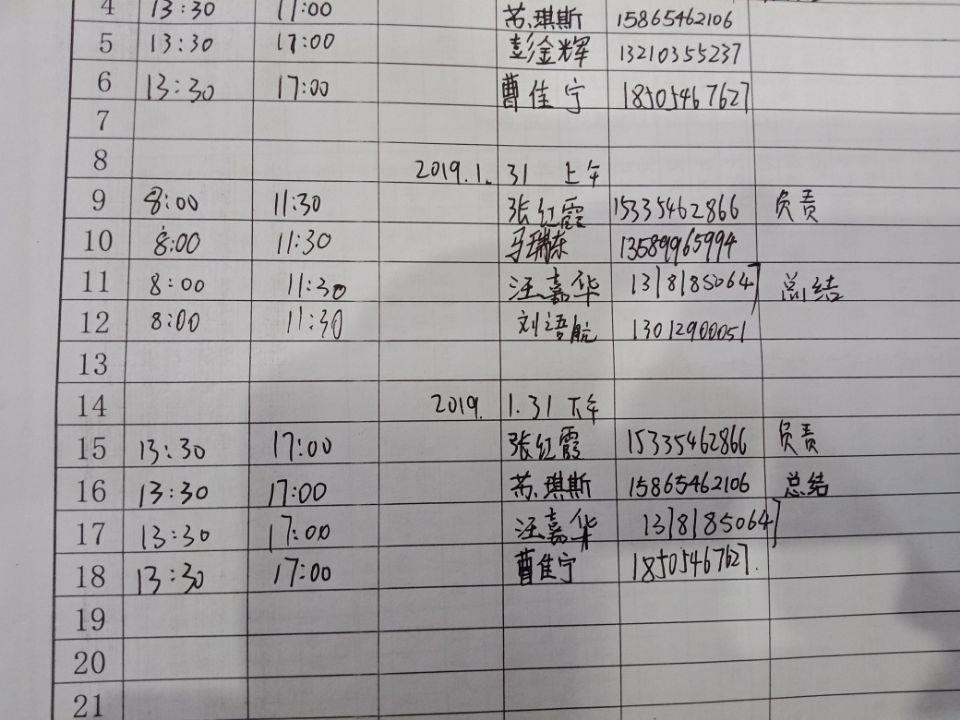 4 13:30 17:00 苏琪斯 15865462106
5 13:30 17:00 彭金辉 13210355237
6 13:30 17:00 曹佳宁 18505467627
7
8 2019.1.31 上午
9 8:00 11:30 张红霞 15335462866 负责
10 8:00 11:30 马瑞东 13589965994
11 8:00 11:30 汪嘉华 13181850647 总结
12 8:00 11:30 刘语航 13012900051
13
14 2019.1.31 下午
15 13:30 17:00 张红霞 15335462866 负责
16 13:30 17:00 苏琪斯 15865462106 总结
17 13:30 17:00 汪嘉华 13181850647
18 13:30 17:00 曹佳宁 18505467627.
19
20
21